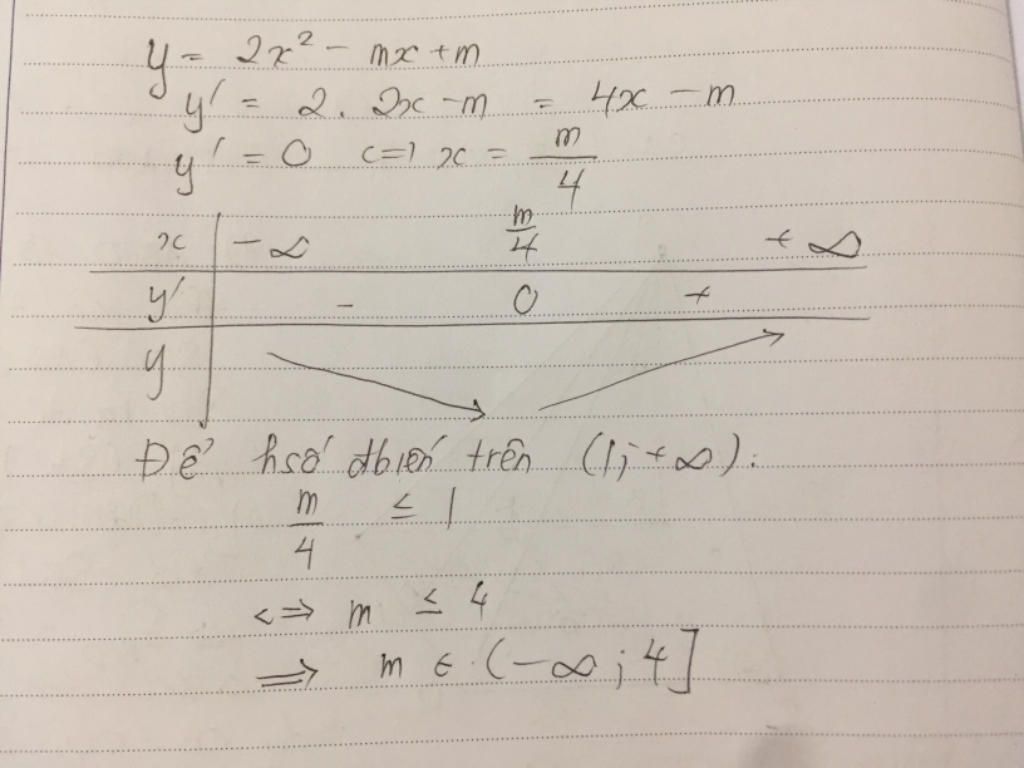 y = 2x² - mx + m
y' = 2. 2x - m = 4x - m
y' = 0 <=> x = m/4
x -∞ m/4 +∞
y' - 0 +
y
Để hsố đbiến trên (1; +∞):
m/4 ≤ 1
<=> m ≤ 4
=> m ∈ (-∞; 4]